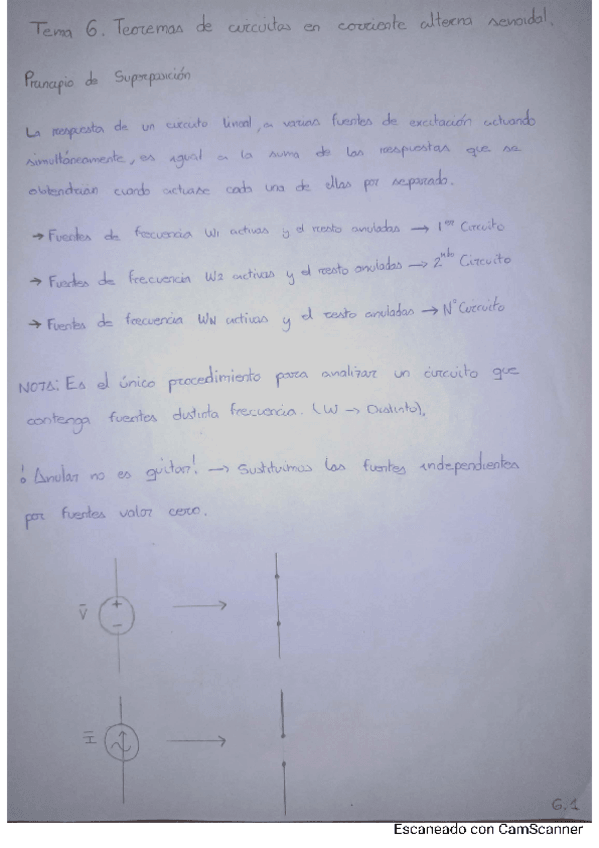 Tema 6. Teoremas de circuitos en corriente alterna senoidal.
Principio de Superposición
La respuesta de un circuito lineal, a varias fuentes de excitación actuando
simultáneamente, es igual a la suma de las respuestas que se
obtendrían cuando actuase cada una de ellas por separado.
→ Fuentes de frecuencia W1 activas y el resto anuladas → 1er Circuito
→ Fuentes de frecuencia W2 activas y el resto anuladas → 2ndo Circuito
→ Fuentes de frecuencia WN activas y el resto anuladas → Nº Circuito
NOTA: Es el único procedimiento para analizar un circuito que
contenga fuentes distinta frecuencia. (W → Distinto).
¡Anular no es quitar! → Sustituimos las fuentes independientes
por fuentes valor cero.
V̅ + −
I̅
6.1
Escaneado con CamScanner